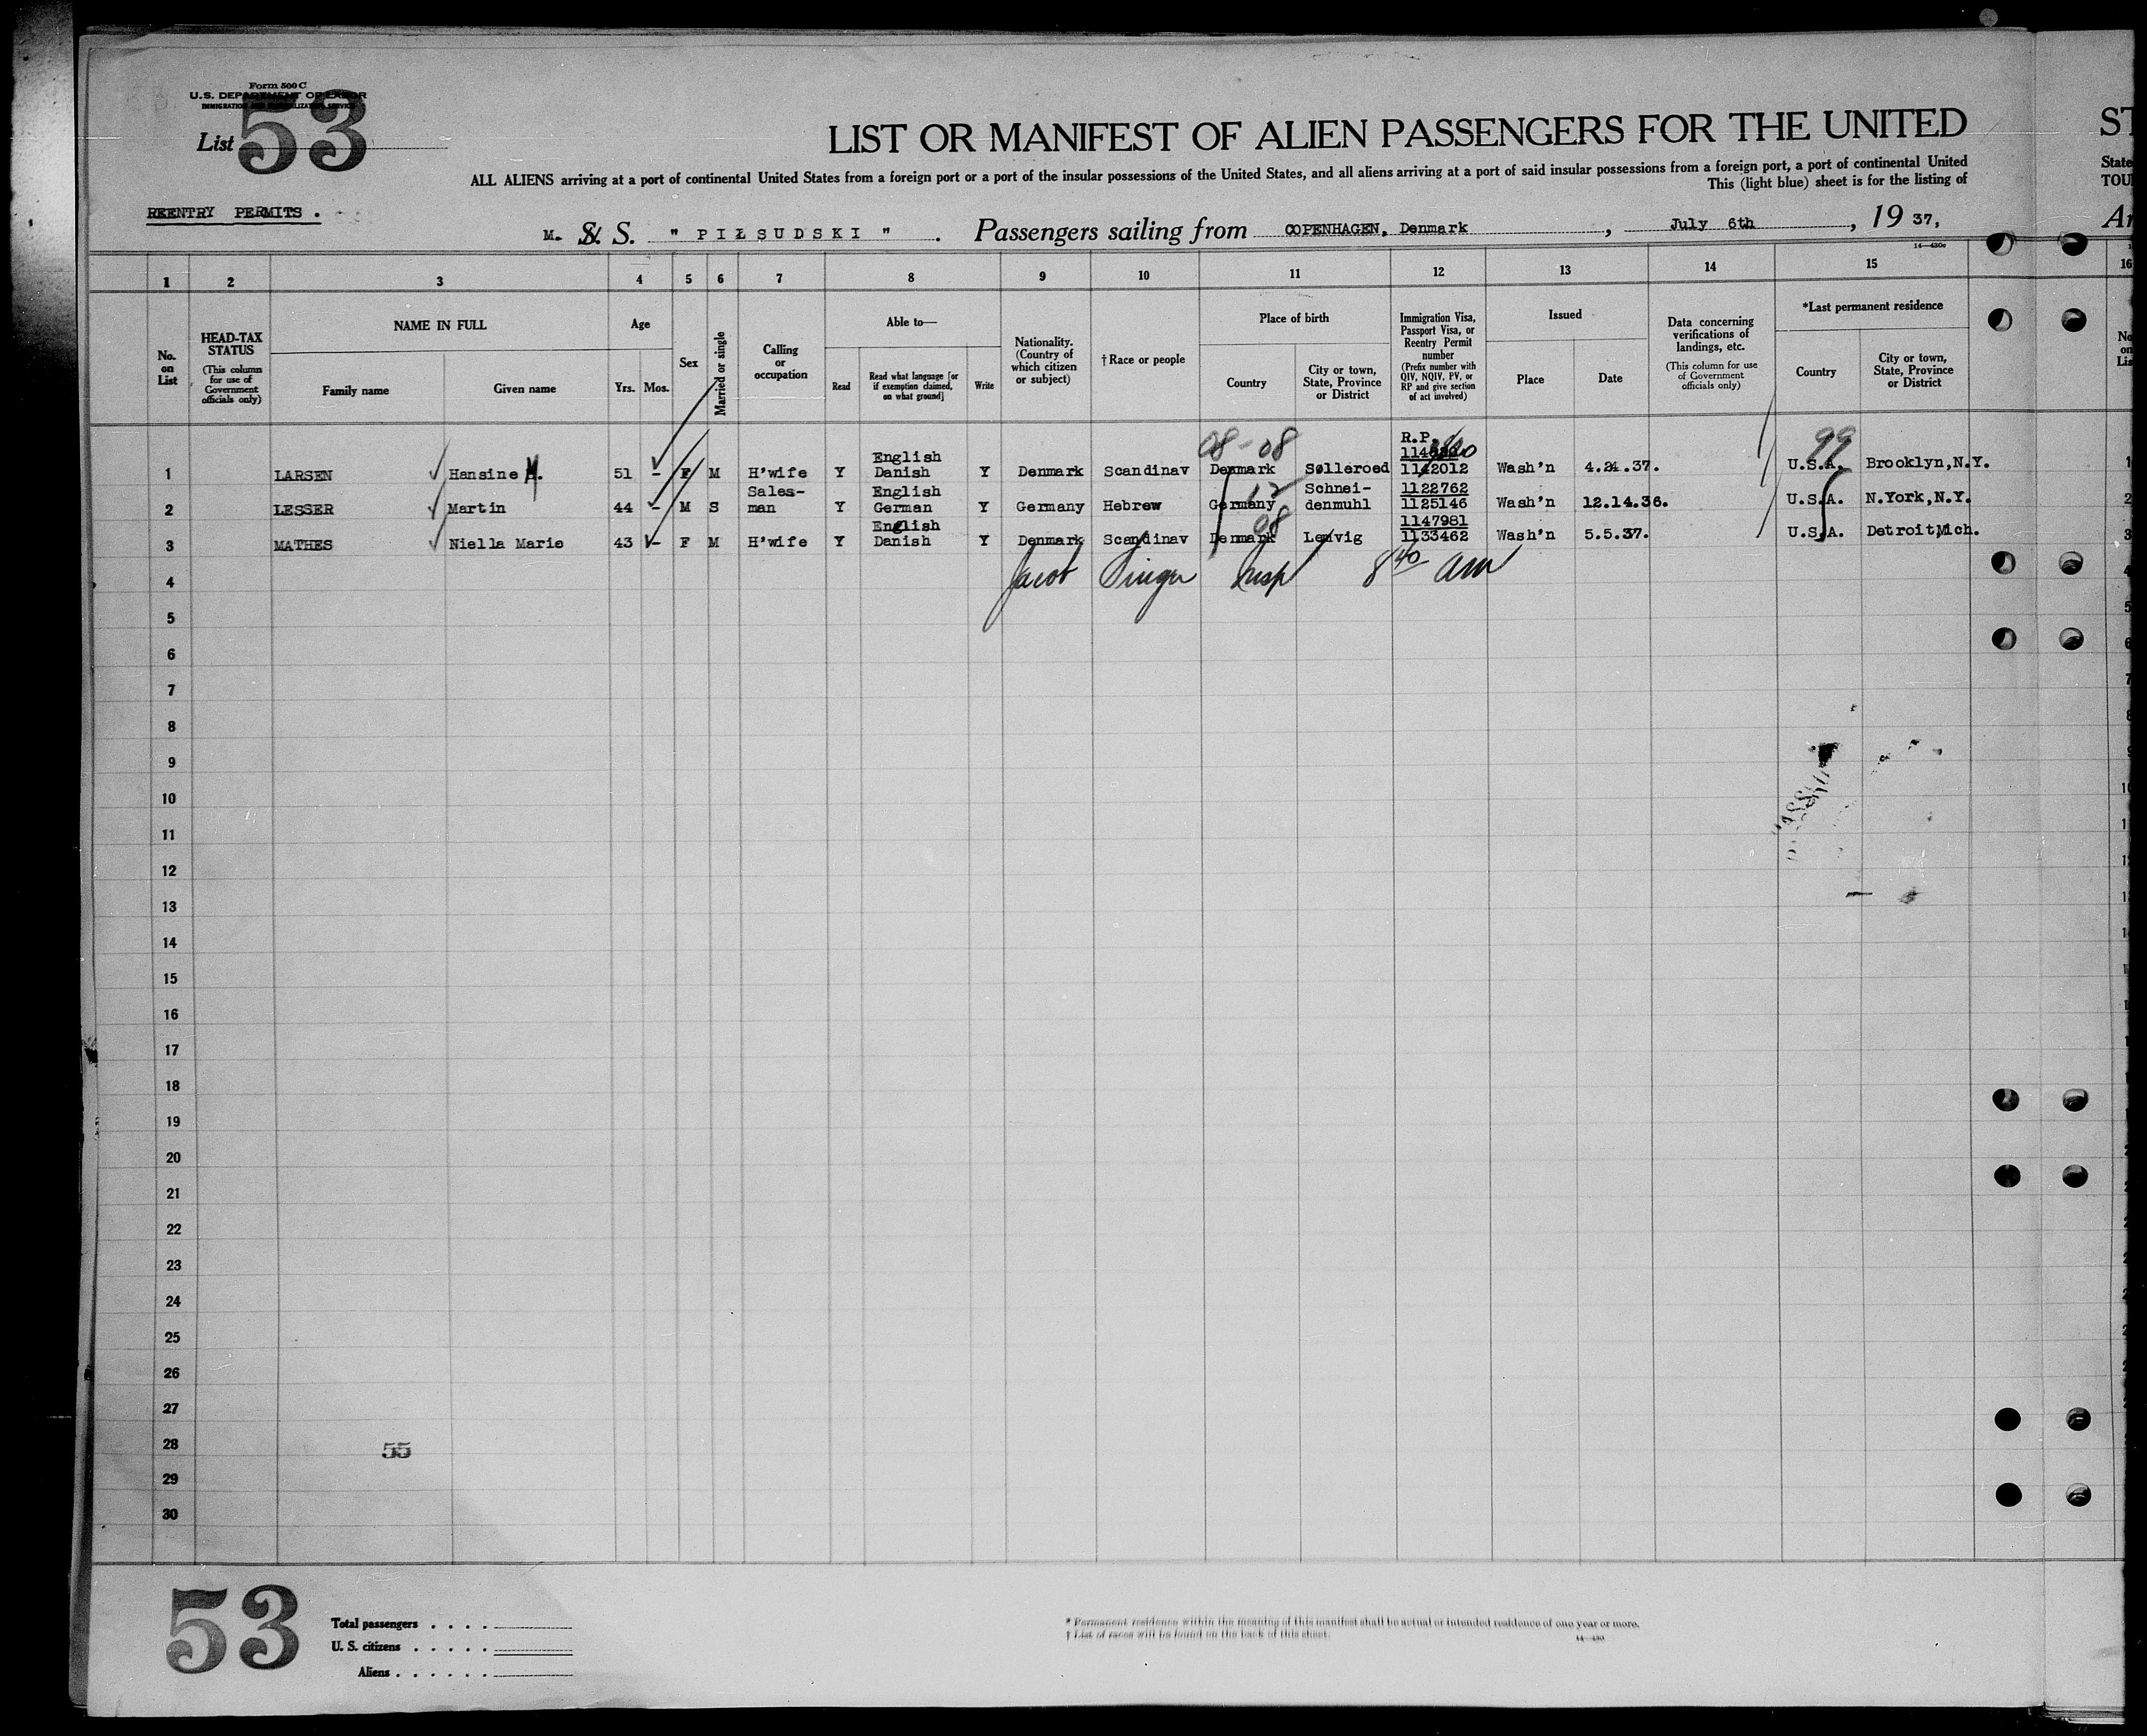 Form 500 C
U.S. DEPARTMENT OF LABOR
IMMIGRATION AND NATURALIZATION SERVICE
List 53
LIST OR MANIFEST OF ALIEN PASSENGERS FOR THE UNITED
ST
ALL ALIENS arriving at a port of continental United States from a foreign port or a port of the insular possessions of the United States, and all aliens arriving at a port of said insular possessions from a foreign port, a port of continental United
State
This (light blue) sheet is for the listing of
TOU
REENTRY PERMITS .
M. S. S. " PIŁSUDSKI " . Passengers sailing from COPENHAGEN, Denmark , July 6th , 19 37,
Ar
14—430c
1 2 3 4 5 6 7 8 9 10 11 12 13 14 15 16
No. on List
HEAD-TAX STATUS (This column for use of Government officials only)
NAME IN FULL
Family name Given name
Age
Yrs. Mos.
Sex
Married or single
Calling or occupation
Able to—
Read Read what language [or if exemption claimed, on what ground] Write
Nationality. (Country of which citizen or subject)
† Race or people
Place of birth
Country City or town, State, Province or District
Immigration Visa, Passport Visa, or Reentry Permit number (Prefix number with QIV, NQIV, PV, or RP and give section of act involved)
Issued
Place Date
Data concerning verifications of landings, etc. (This column for use of Government officials only)
*Last permanent residence
Country City or town, State, Province or District
No on Lis
08-08 R.P. 99
1 LARSEN Hansine M. 51 - F M H'wife Y English Danish Y Denmark Scandinav Denmark Sølleroed 1142012 Wash'n 4.24.37. U.S.A. Brooklyn,N.Y. 1
12
2 LESSER Martin 44 - M S Sales-man Y English German Y Germany Hebrew Germany Schnei-denmuhl 1122762 1125146 Wash'n 12.14.36. U.S.A. N.York,N.Y. 2
08
3 MATHES Niella Marie 43 - F M H'wife Y English Danish Y Denmark Scandinav Denmark Lemvig 1147981 1133462 Wash'n 5.5.37. U.S.A. Detroit,Mich. 3
4 Jacob Singer Insp 8 40 am
5
6
7
8
9
10
11
12
13
14
15
16
17
18
19
20
21
22
23
24
25
26
27
28 55
29
30
53
Total passengers . . . .
U. S. citizens . . . . .
Aliens . . . . . .
* Permanent residence within the meaning of this manifest shall be actual or intended residence of one year or more.
† List of races will be found on the back of this sheet.
14—430